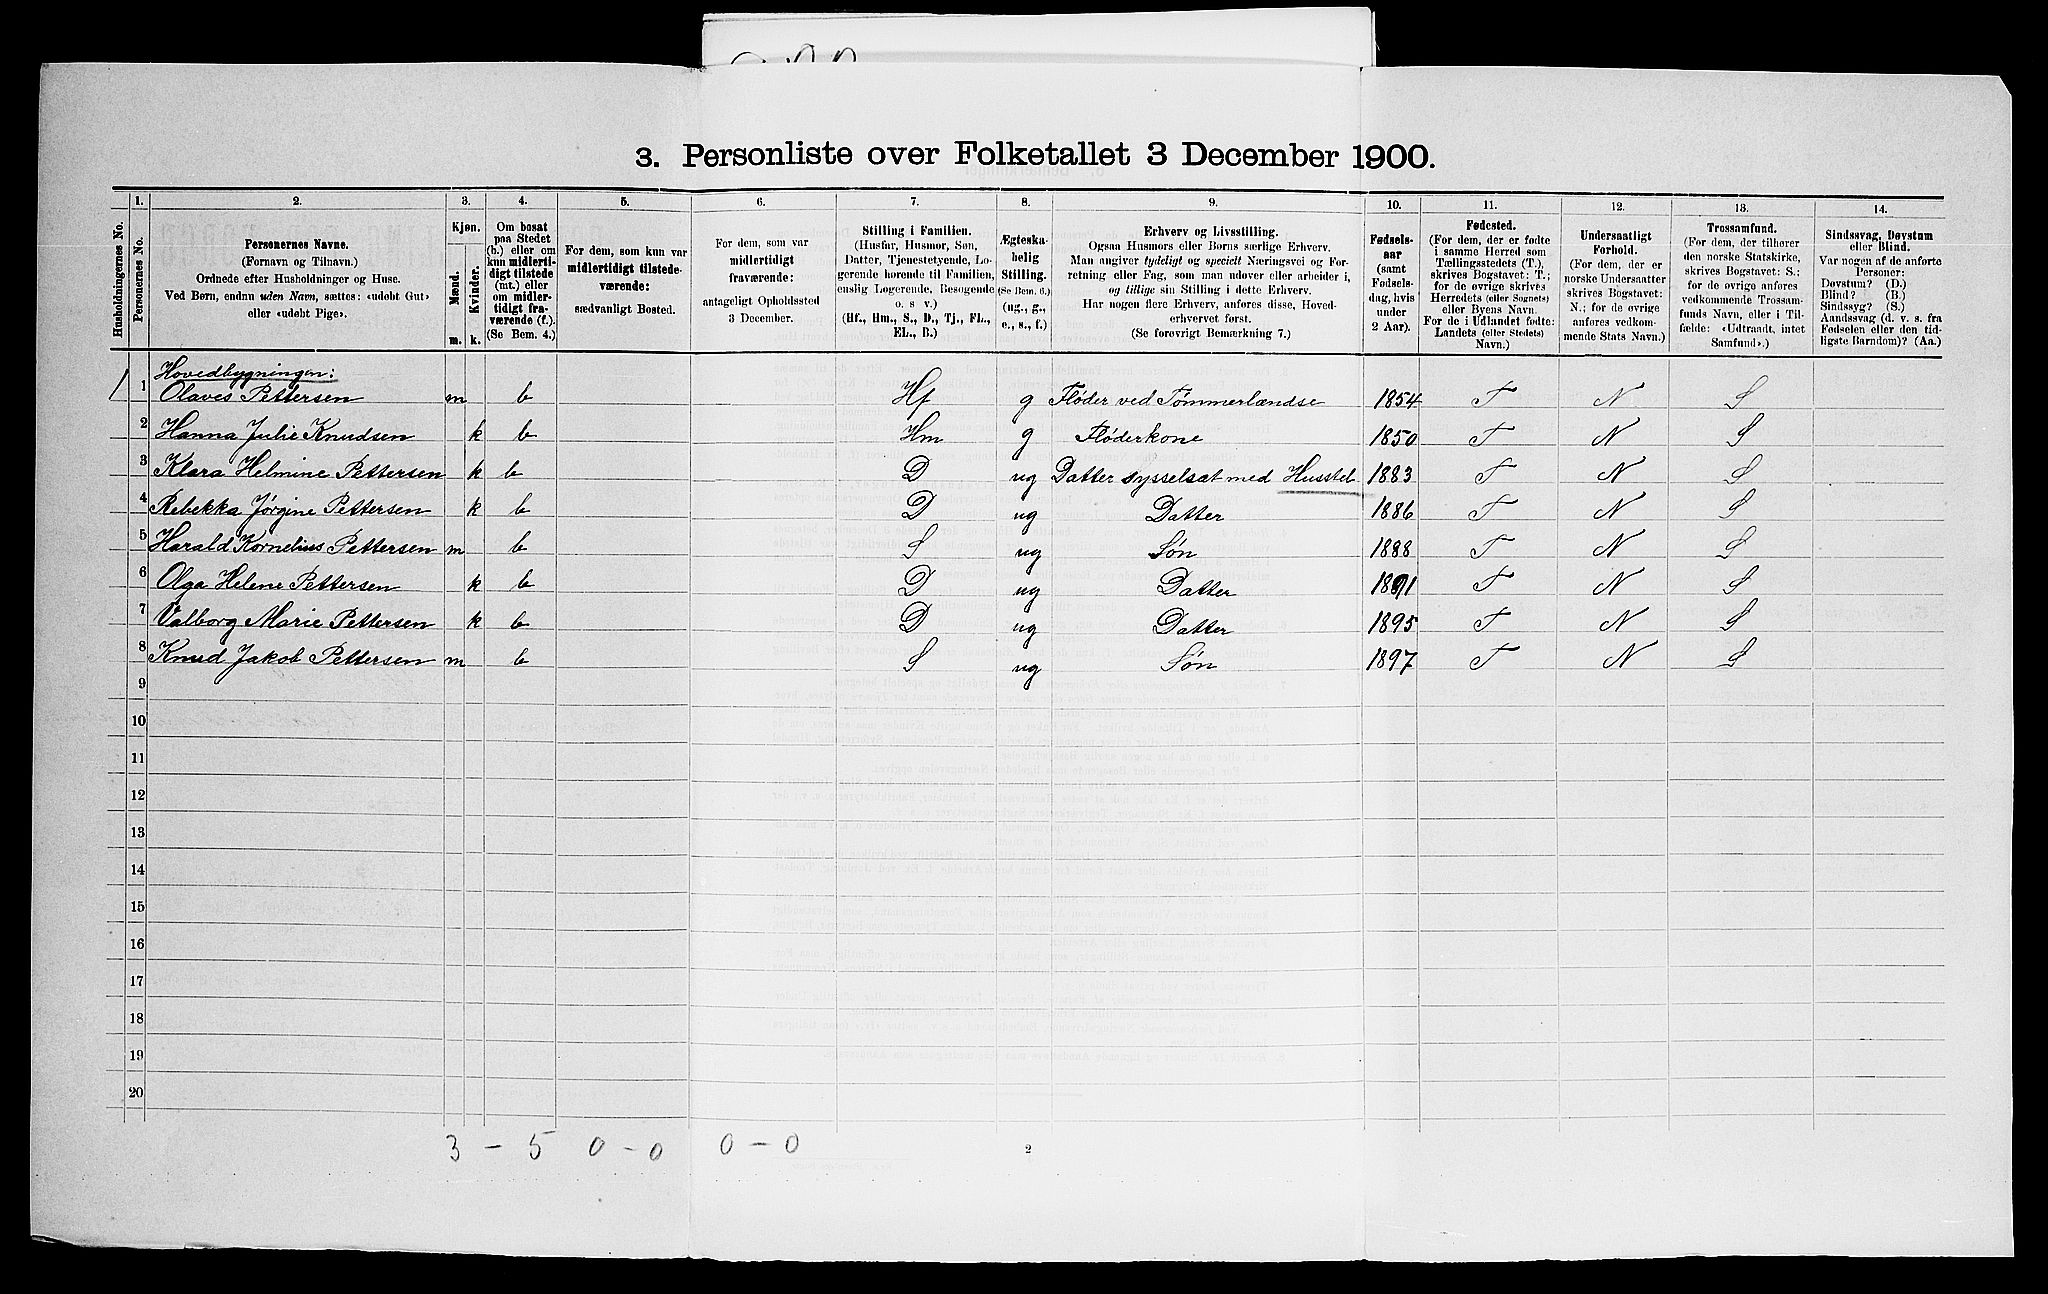 3. Personliste over Folketallet 3 December 1900.
Husholdningernes No.
1.
Personernes No.
2.
Personernes Navne.
(Fornavn og Tilnavn.)
Ordnede efter Husholdninger og Huse.
Ved Børn, endnu uden Navn, sættes: «udøbt Gut»
eller «udøbt Pige».
3.
Kjøn.
Mænd.
Kvinder.
m.
k.
4.
Om bosat
paa Stedet
(b.) eller om
kun midlerti-
digt tilstede
(mt.) eller
om midler-
tidigt fra-
værende (f.).
(Se Bem. 4.)
5.
For dem, som kun var
midlertidigt tilstede-
værende:
sædvanligt Bosted.
6.
For dem, som var
midlertidigt
fraværende:
antageligt Opholdssted
3 December.
7.
Stilling i Familien.
(Husfar, Husmor, Søn,
Datter, Tjenestetyende, Lo-
gerende hørende til Familien,
enslig Logerende, Besøgende
o. s v.)
(Hf., Hm., S., D., Tj., FL.,
EL., B.)
8.
Ægteska-
belig
Stilling.
(Se Bem. 6.)
(ug., g.,
e., s., f.)
9.
Erhverv og Livsstilling.
Ogsaa Husmors eller Børns særlige Erhverv.
Man angiver tydeligt og specielt Næringsvei og For-
retning eller Fag, som man udøver eller arbeider i,
og tillige sin Stilling i dette Erhverv.
Har nogen flere Erhverv, anføres disse, Hoved-
erhvervet først.
(Se forøvrigt Bemærkning 7.)
10.
Fødsels-
aar
(samt
Fødsels-
dag, hvis
under
2 Aar).
11.
Fødested.
(For dem, der er fødte
i samme Herred som
Tællingsstedets (T.),
skrives Bogstavet: T.;
for de øvrige skrives
Herredets (eller Sognets)
eller Byens Navn.
For de i Udlandet fødte:
Landets (eller Stedets)
Navn.)
12.
Undersaatligt
Forhold.
(For dem, der er
norske Undersaatter
skrives Bogstavet:
N.; for de øvrige
anføres vedkom-
mende Stats Navn.)
13.
Trossamfund.
(For dem, der tilhører
den norske Statskirke,
skrives Bogstavet: S.;
for de øvrige anføres
vedkommende Trossam-
funds Navn, eller i Til-
fælde: «Udtraadt, intet
Samfund».)
14.
Sindssvag, Døvstum
eller Blind.
Var nogen af de anførte
Personer:
Døvstum? (D.)
Blind? (B.)
Sindssyg? (S.)
Aandssvag (d. v. s. fra
Fødselen eller den tid-
ligste Barndom)? (Aa.)
Hovedbygningen:
1 Olaves Pettersen m b Hf g Fløder ved Tømmerlændse 1854 T N S
2 Hanna Julie Knudsen k b Hm g Fløderkone 1850 T N S
3 Klara Helmine Pettersen k b D ug Datter sysselsat med Husstel 1883 T N S
4 Rebekka Jørgine Pettersen k b D ug Datter 1886 T N S
5 Harald Kornelius Pettersen m b S ug Søn 1888 T N S
6 Olga Helene Pettersen k b D ug Datter 1891 T N S
7 Valborg Marie Pettersen k b D ug Datter 1895 T N S
8 Knud Jakob Pettersen m b S ug Søn 1897 T N S
9
10
11
12
13
14
15
16
17
18
19
20
3 - 5 0 - 0 0 - 0
2